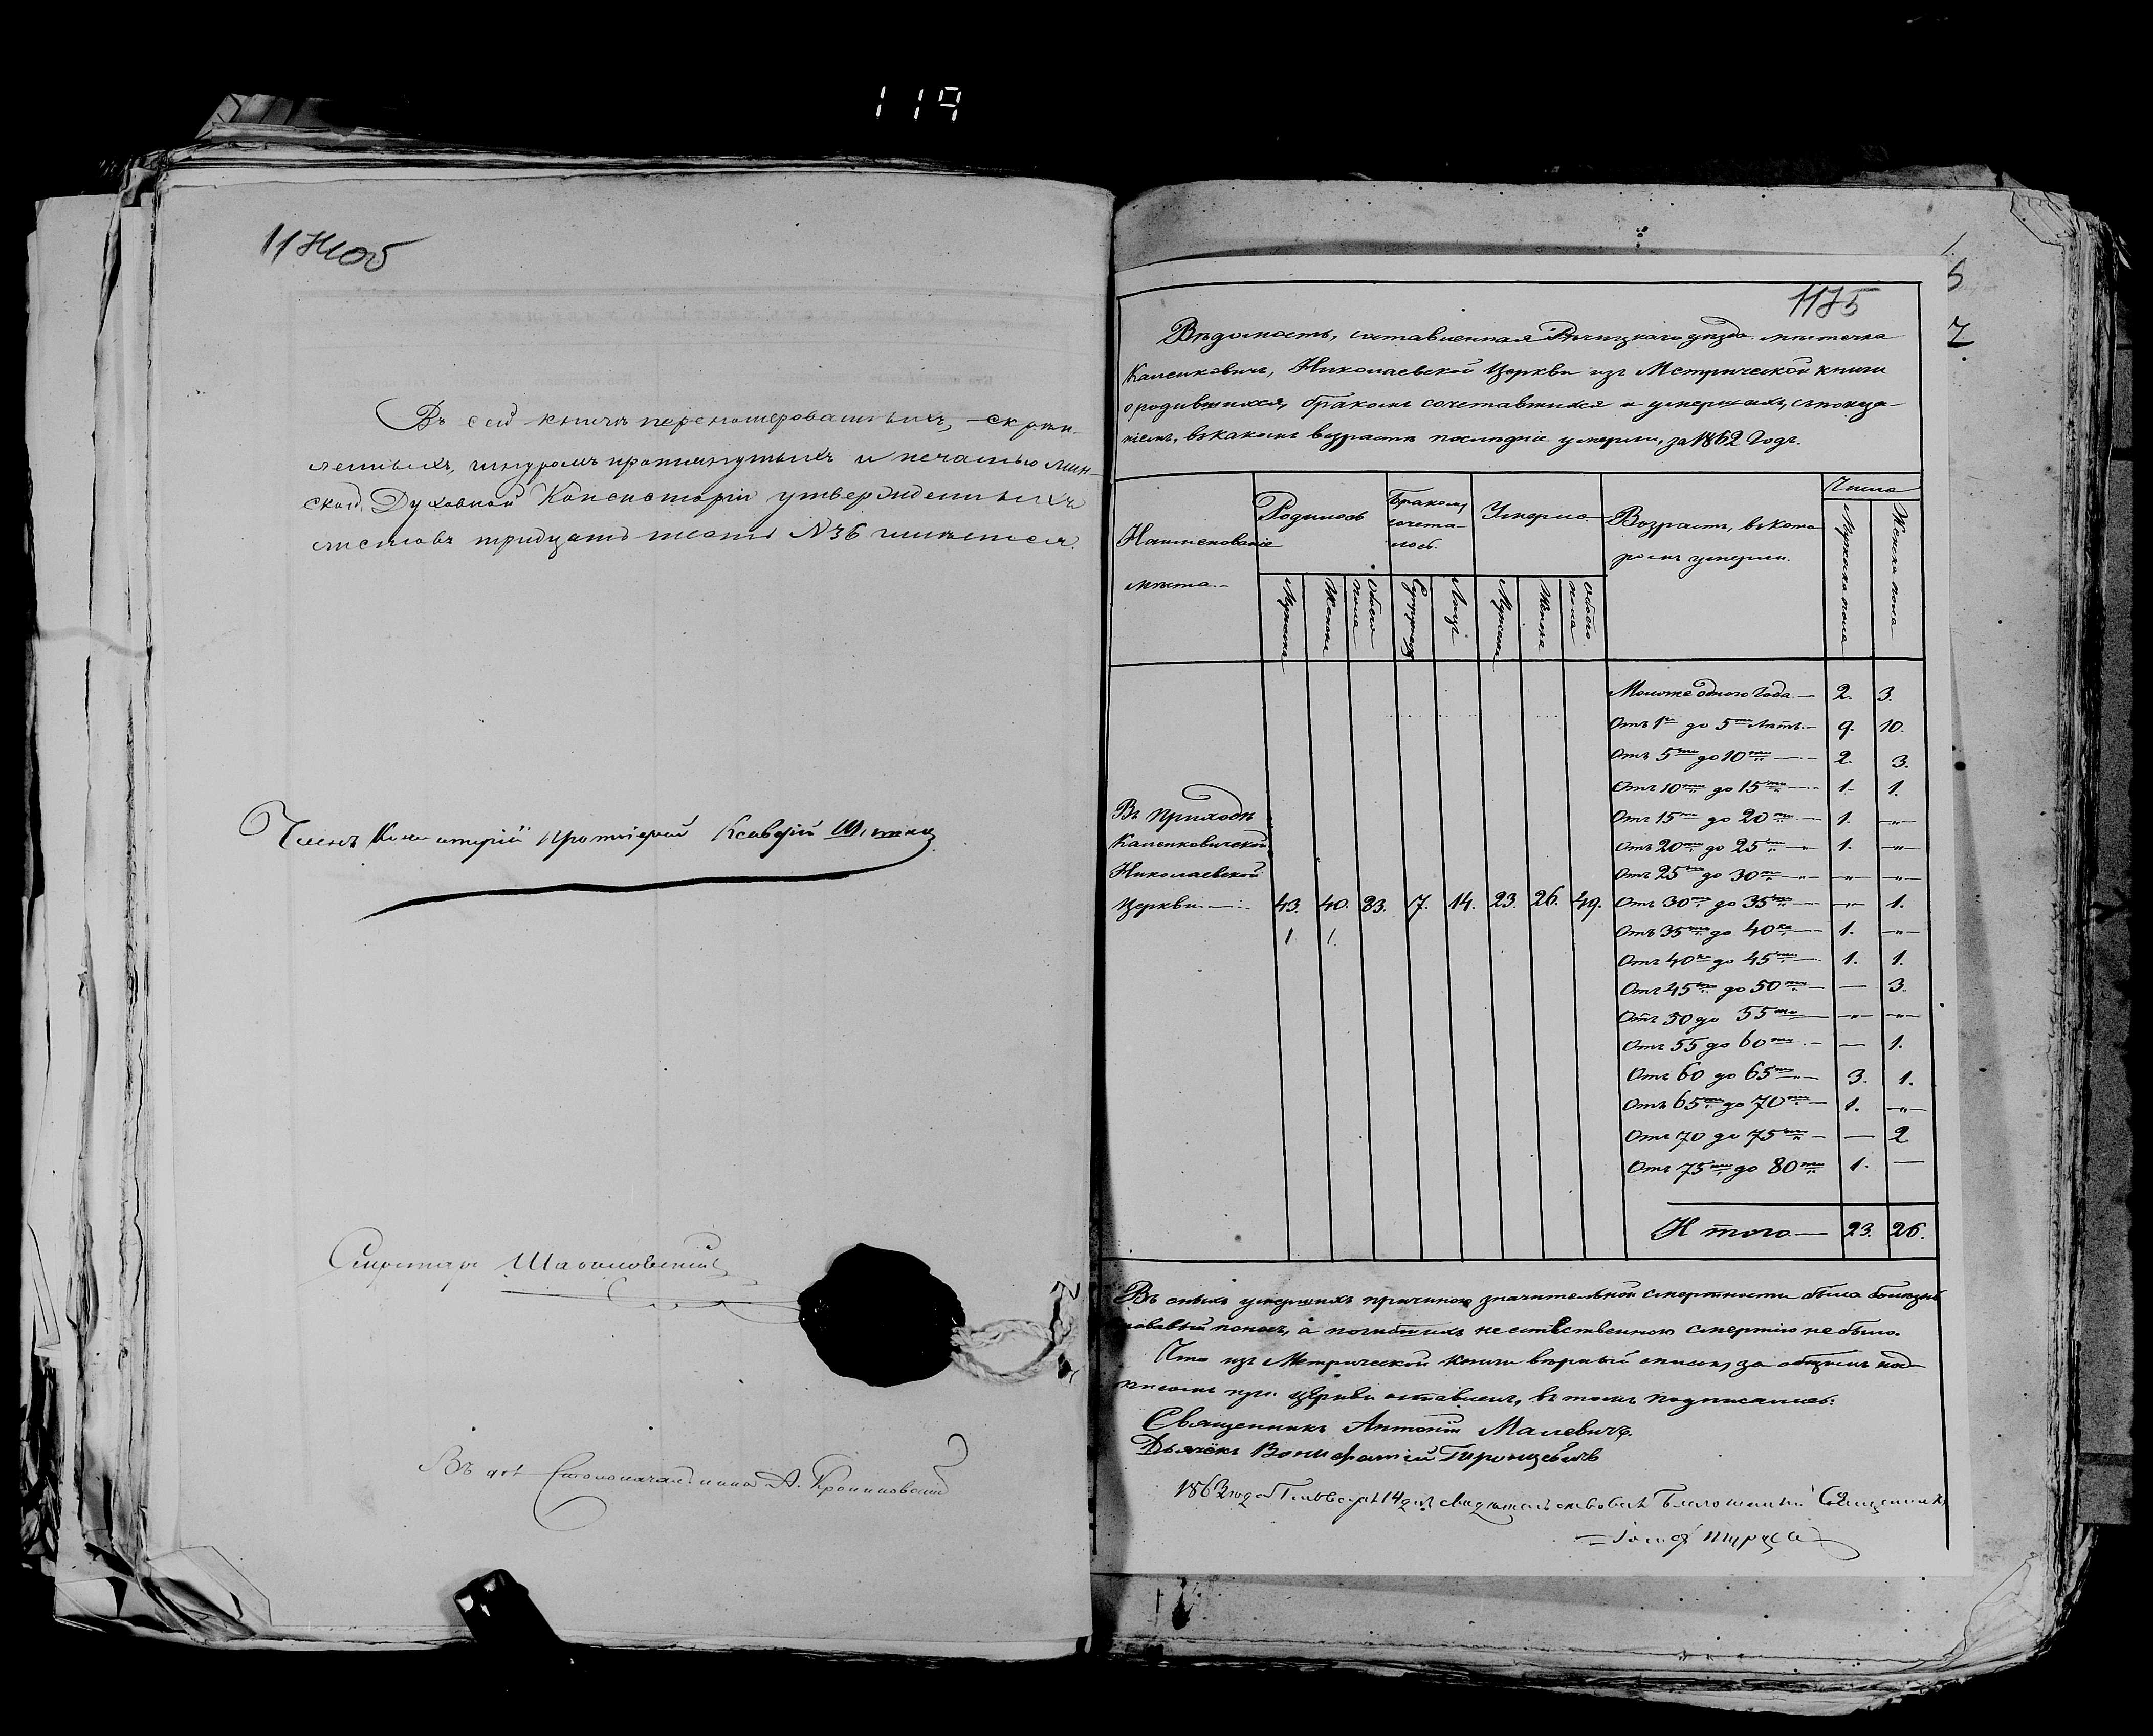 119
1174об
Въ сей книгѣ перенумерованныхъ, скрѣп-
ленныхъ, шнуромъ протянутыхъ и печатью Мин-
ской Духовной Консисторіи утвержденныхъ
листовъ тридцать шесть №36 имѣется.
Членъ Консисторіи Протоіерей
Секретарь
Въ дол. Столоначальника А.
1175
Вѣдомость, составленная Рѣчицкаго уѣзда мѣстечка
Каленковичъ, Николаевской Церкви изъ Метрической книги
о родившихся, бракомъ сочетавшихся и умершихъ, съ показа-
ніемъ, въ какомъ возрастѣ послѣдніе умерли, за 1862 годъ.
Наименованіе мѣста.
Родилось
Бракомъ сочета-лось.
Умерло
Возрастъ, въ кото-
ромъ умерли.
Число
Мужска пола
Женска пола
Мужска
Женска
Обоего пола
Супружес
Лицъ
Мужска
Женска
Обоего пола
Моложе одного года — 2. 3.
Отъ 1го до 5ти лѣтъ — 9. 10.
Отъ 5ти до 10ти — 2. 3.
Отъ 10ти до 15ти — 1. 1.
Отъ 15ти до 20ти — 1. —"—
Отъ 20ти до 25ти — 1. —"—
Отъ 25ти до 30ти — —"— —"—
Въ приходѣ
Каленковичской
Николаевской
Церкви — 43. 40. 83. 7. 14. 23. 26. 49. Отъ 30ти до 35ти — —"— 1.
1 1. Отъ 35ти до 40ка — 1. —"—
Отъ 40ка до 45ти — 1. 1.
Отъ 45ти до 50ти — — 3.
Отъ 50 до 55ти — —"— —"—
Отъ 55 до 60ти — — 1.
Отъ 60 до 65ти — 3. 1.
Отъ 65ти до 70ти — 1. —"—
Отъ 70 до 75ти — — 2
Отъ 75ти до 80ти 1. —
Итого — 23. 26.
Въ сихъ умершихъ причиною значительной смертности была болѣзнь
кровавый поносъ, а погибшихъ неестественною смертію не было.
Что изъ Метрической книги вѣрный списокъ за общимъ под-
писомъ при церкви оставленъ, въ томъ подписались:
Священникъ Антоній Малевичъ.
Дьячекъ Вонифатій
1863 года Генваря 14 дня свидѣтельствовалъ Благочинный Священникъ